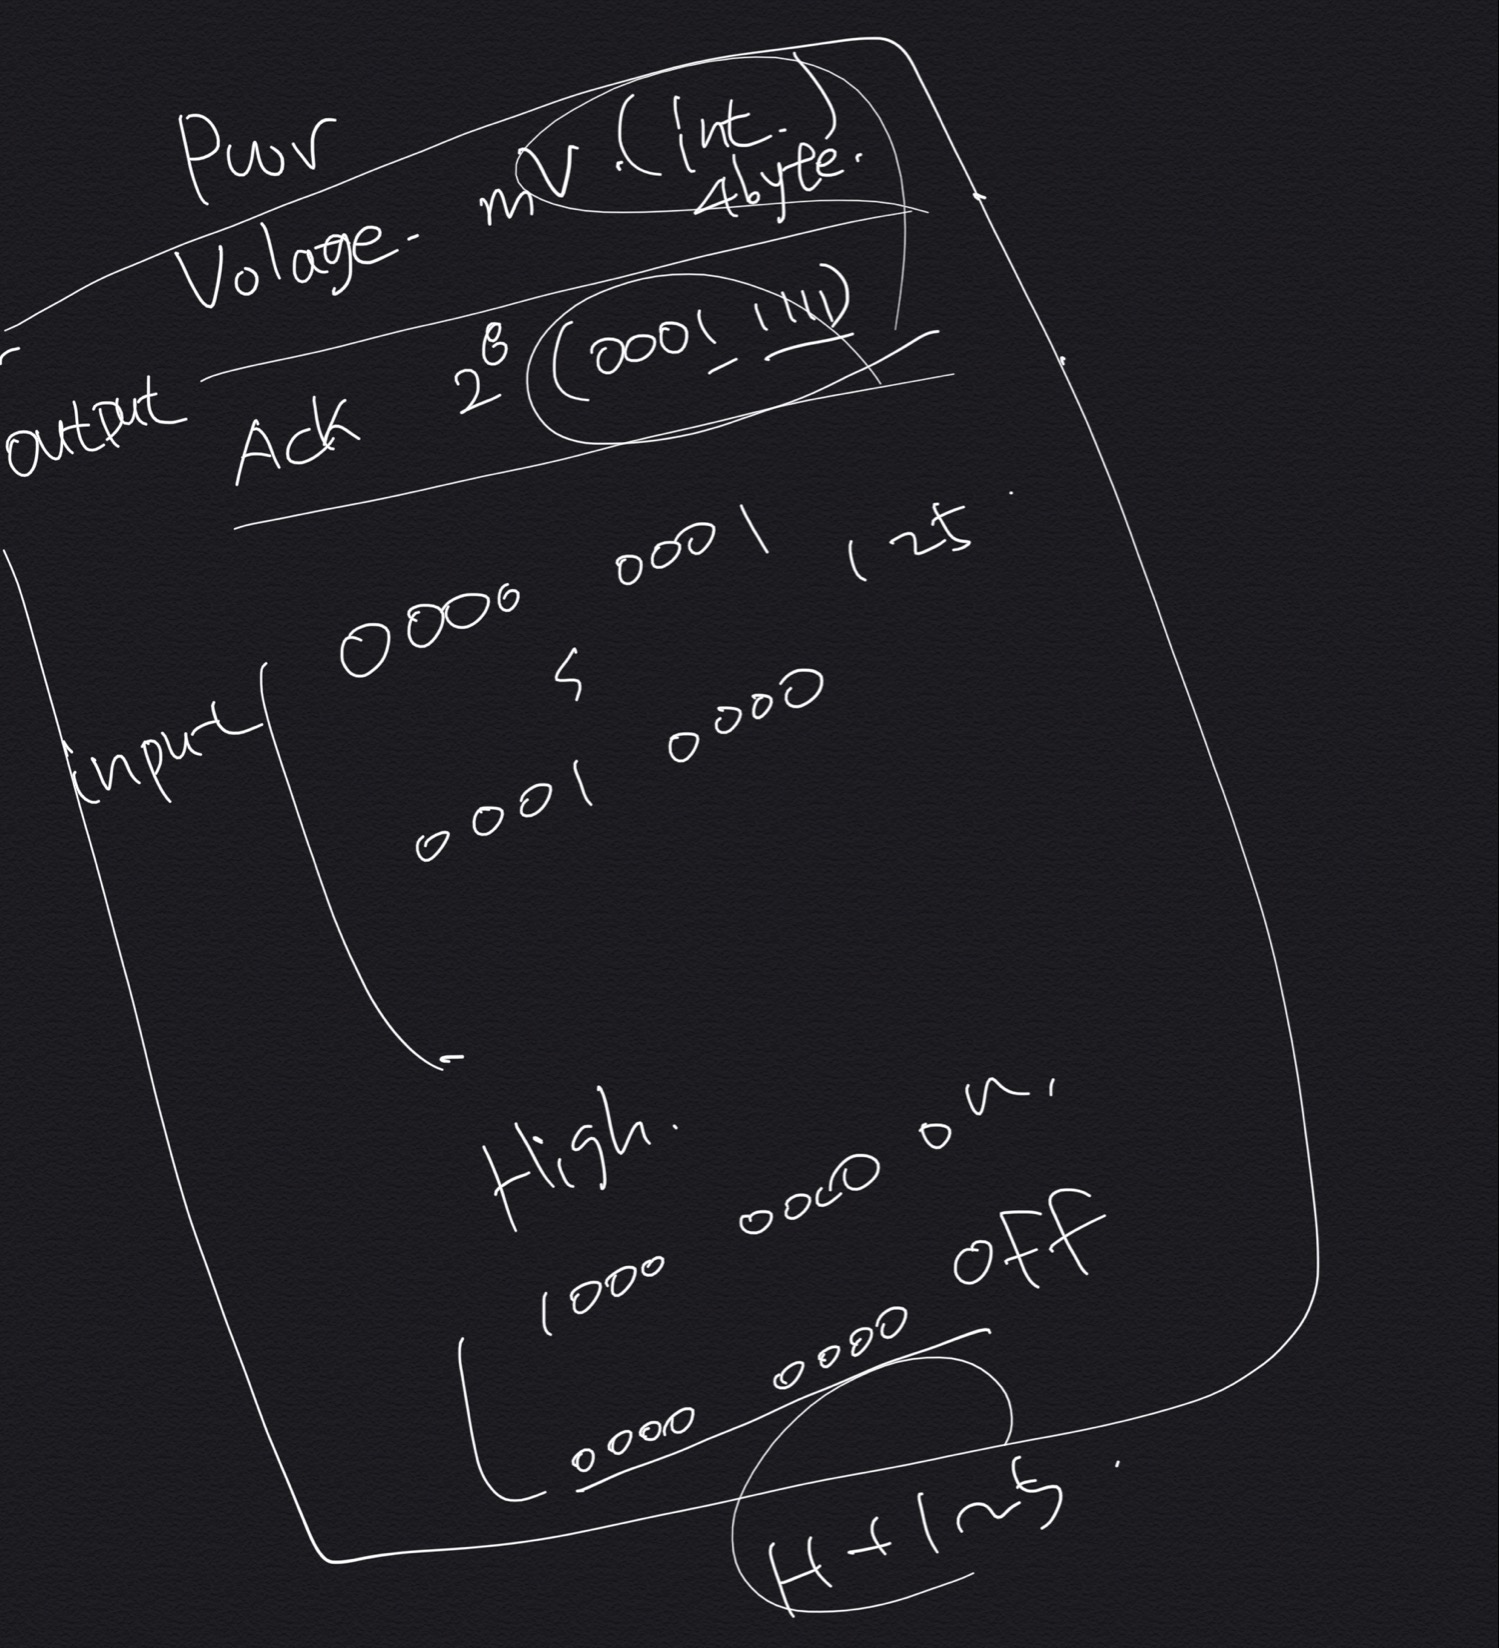 Pwr
Volage. mV.(int.)
4byte.
output
Ack 2^8 (0001 1111)
0000 0001 125
input
0001 0000
High.
1000 0000 on.
0000 0000 off
H+125.